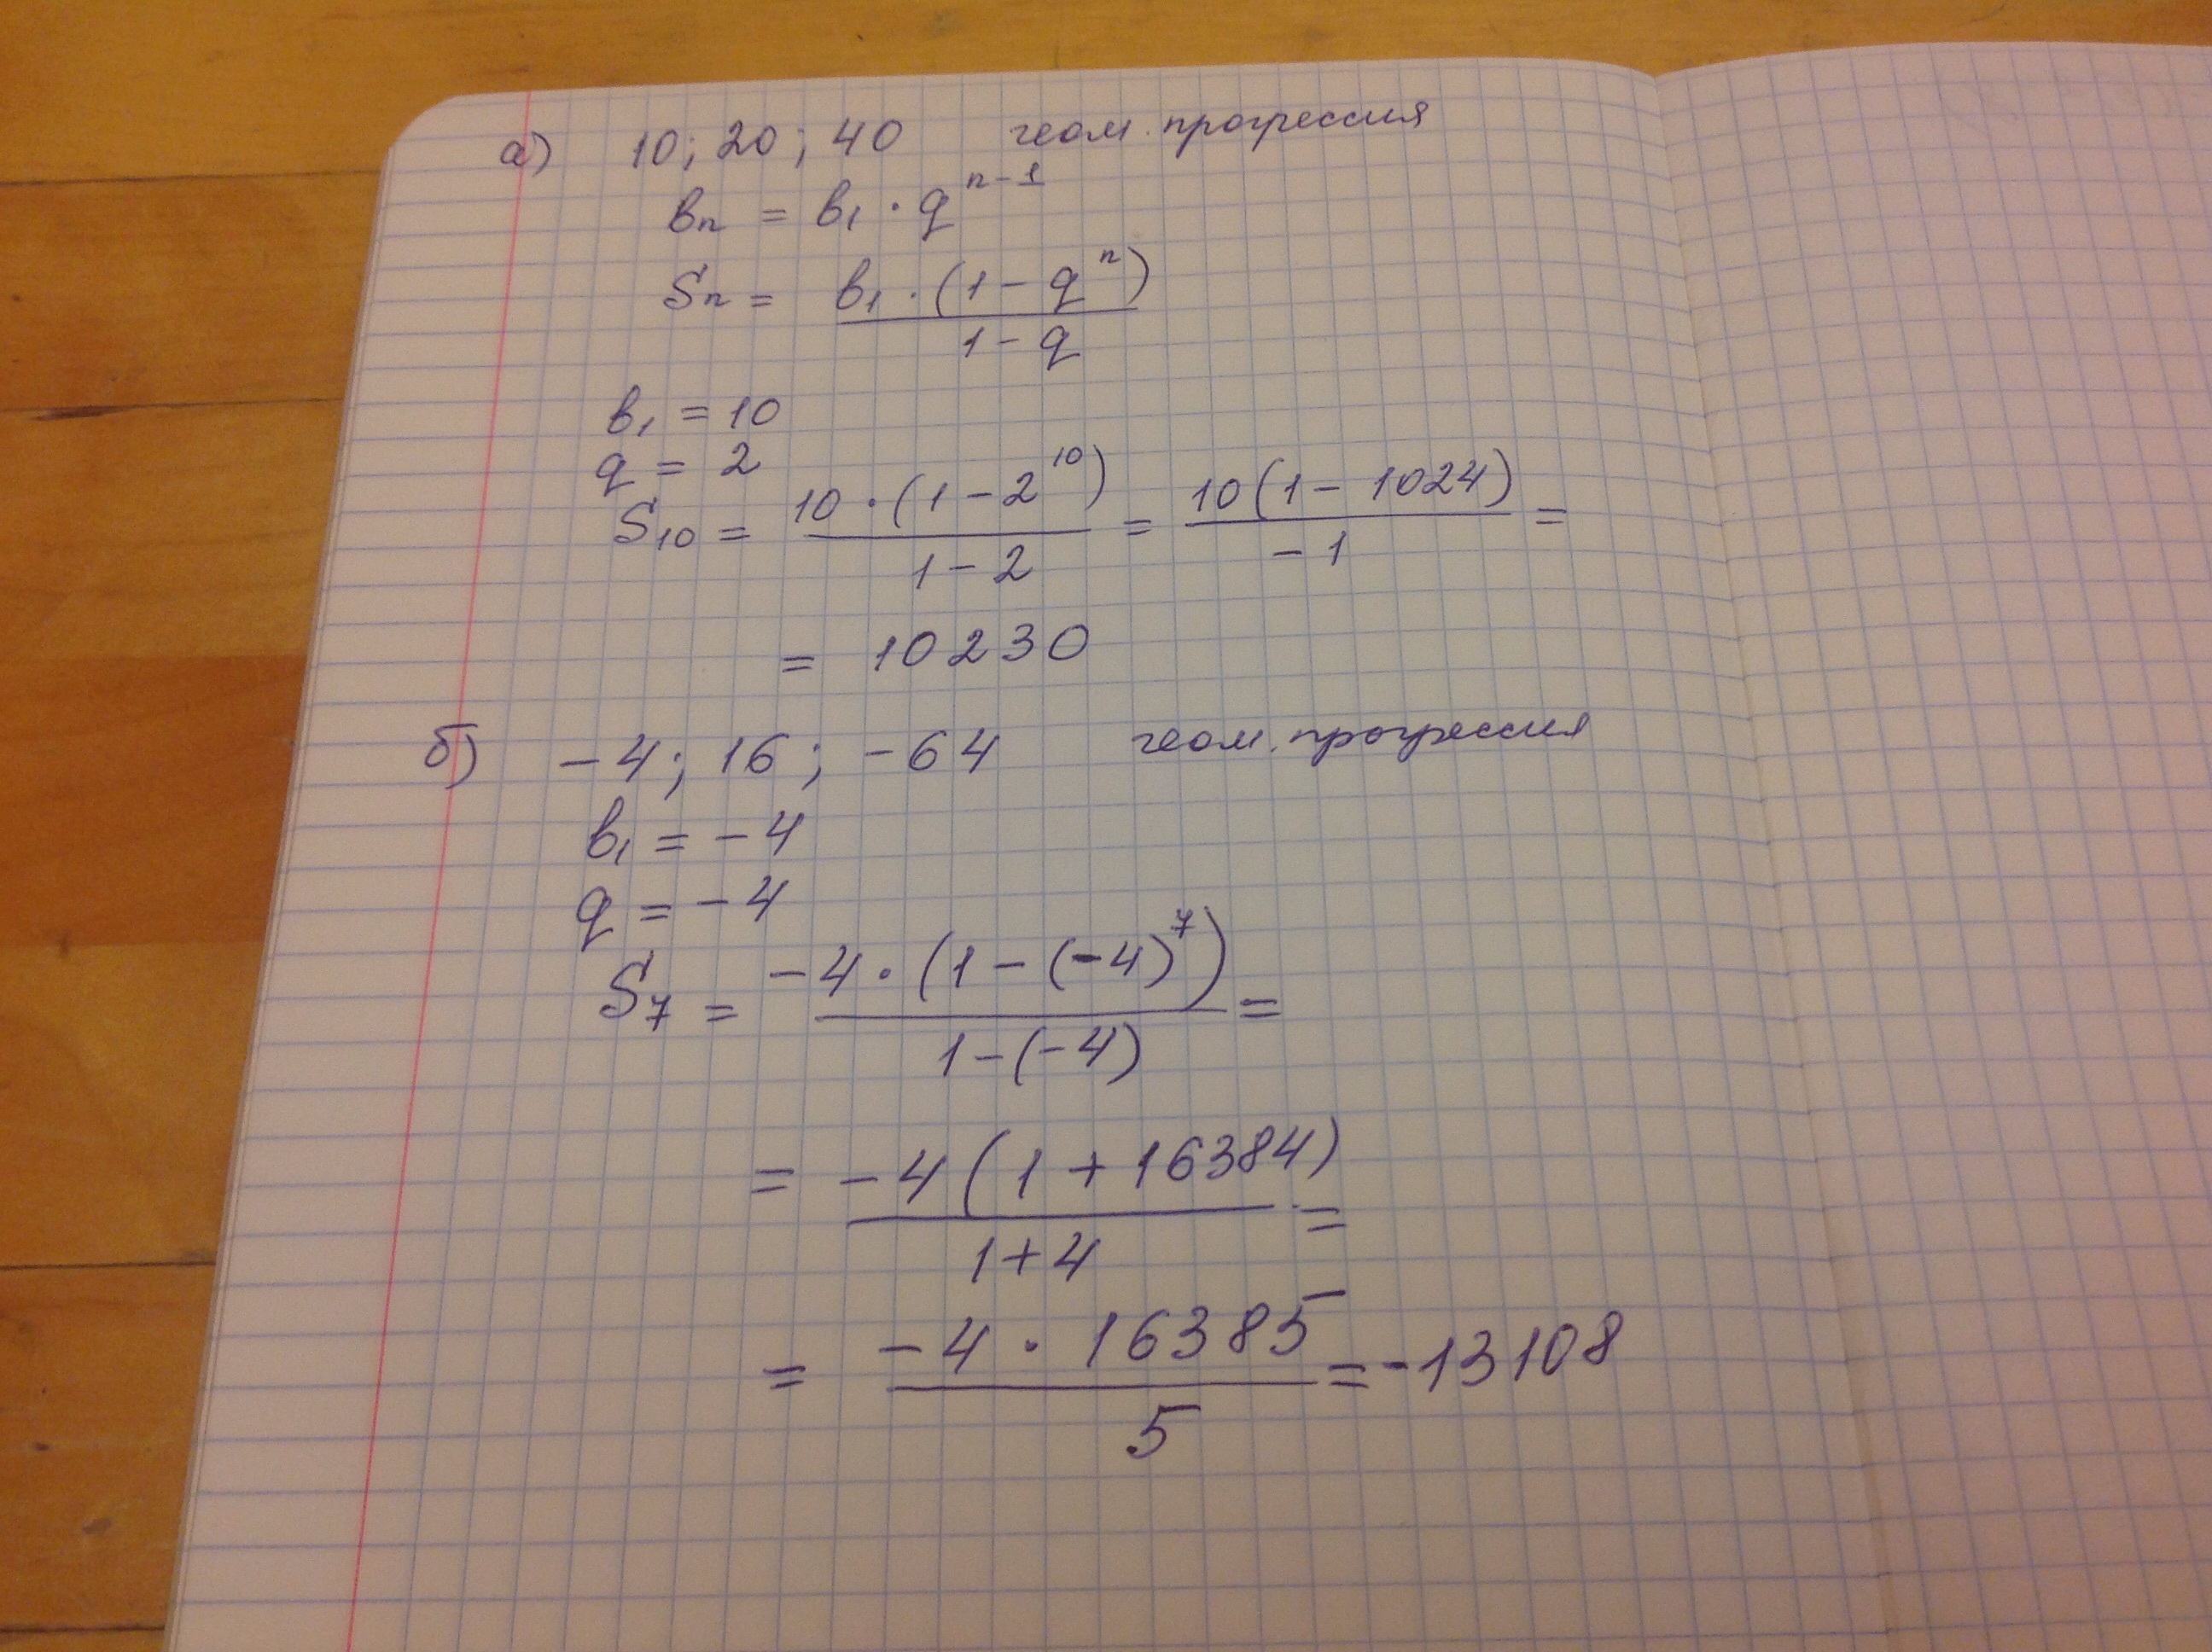 а) 10; 20; 40 геом. прогрессия
bₙ = b₁ · qⁿ⁻¹
Sₙ = b₁ · (1 - qⁿ) / 1 - q
b₁ = 10
q = 2
S₁₀ = 10 · (1 - 2¹⁰) / 1 - 2 = 10(1 - 1024) / -1 =
= 10230
б) -4; 16; -64 геом. прогрессия
b₁ = -4
q = -4
S₇ = -4 · (1 - (-4)⁷) / 1 - (-4) =
= -4(1 + 16384) / 1 + 4 =
= -4 · 16385 / 5 = -13108